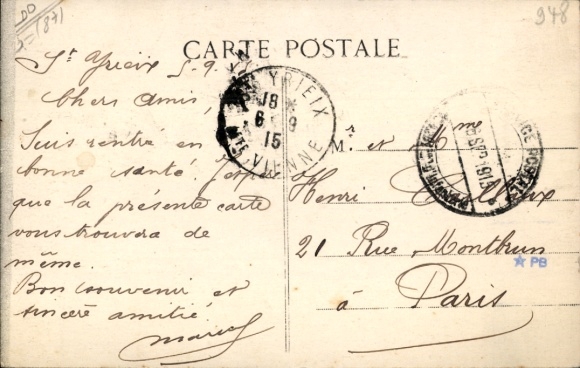 DD
(87)
948
CARTE POSTALE
St Yrieix 5.9.
Chers Amis,
Suis rentré en
bonne santé. J'espère
que la présente carte
vous trouvera de
même.
Bon souvenir et
sincère amitié
Marcel
YRIEIX
18
6 9
15
VIENNE
Mr. et Mme
Henri
21 Rue Montbrun
à Paris
SEP 1915
PB